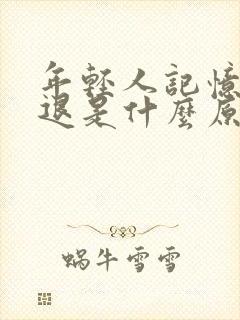 年轻人記憶
退是什麼原
蝸牛雪雪